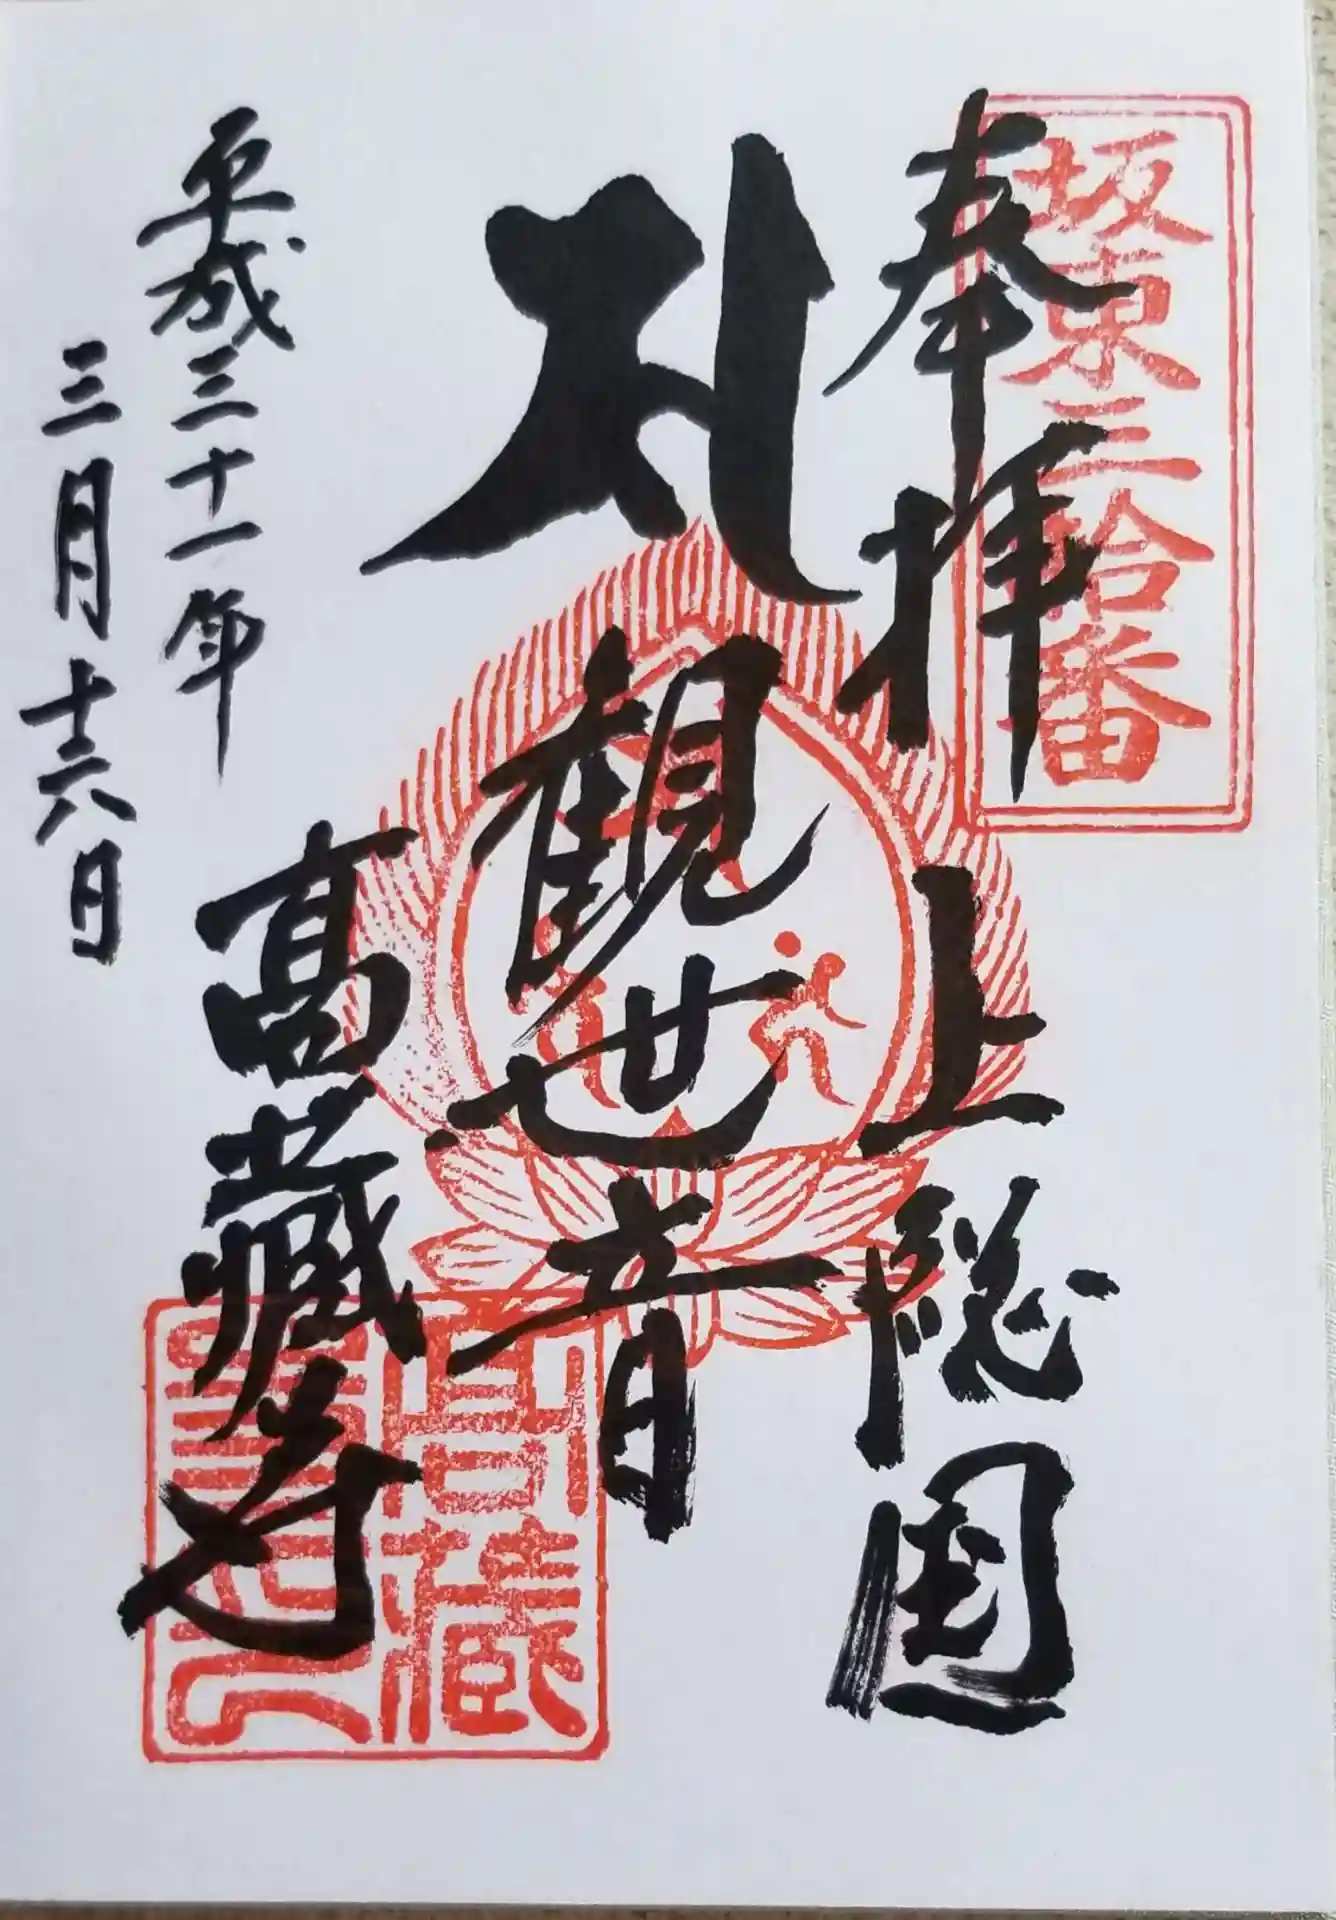 坂東三拾番
奉拝
上総国
観世音
平成三十一年
三月十六日
高蔵寺
高蔵